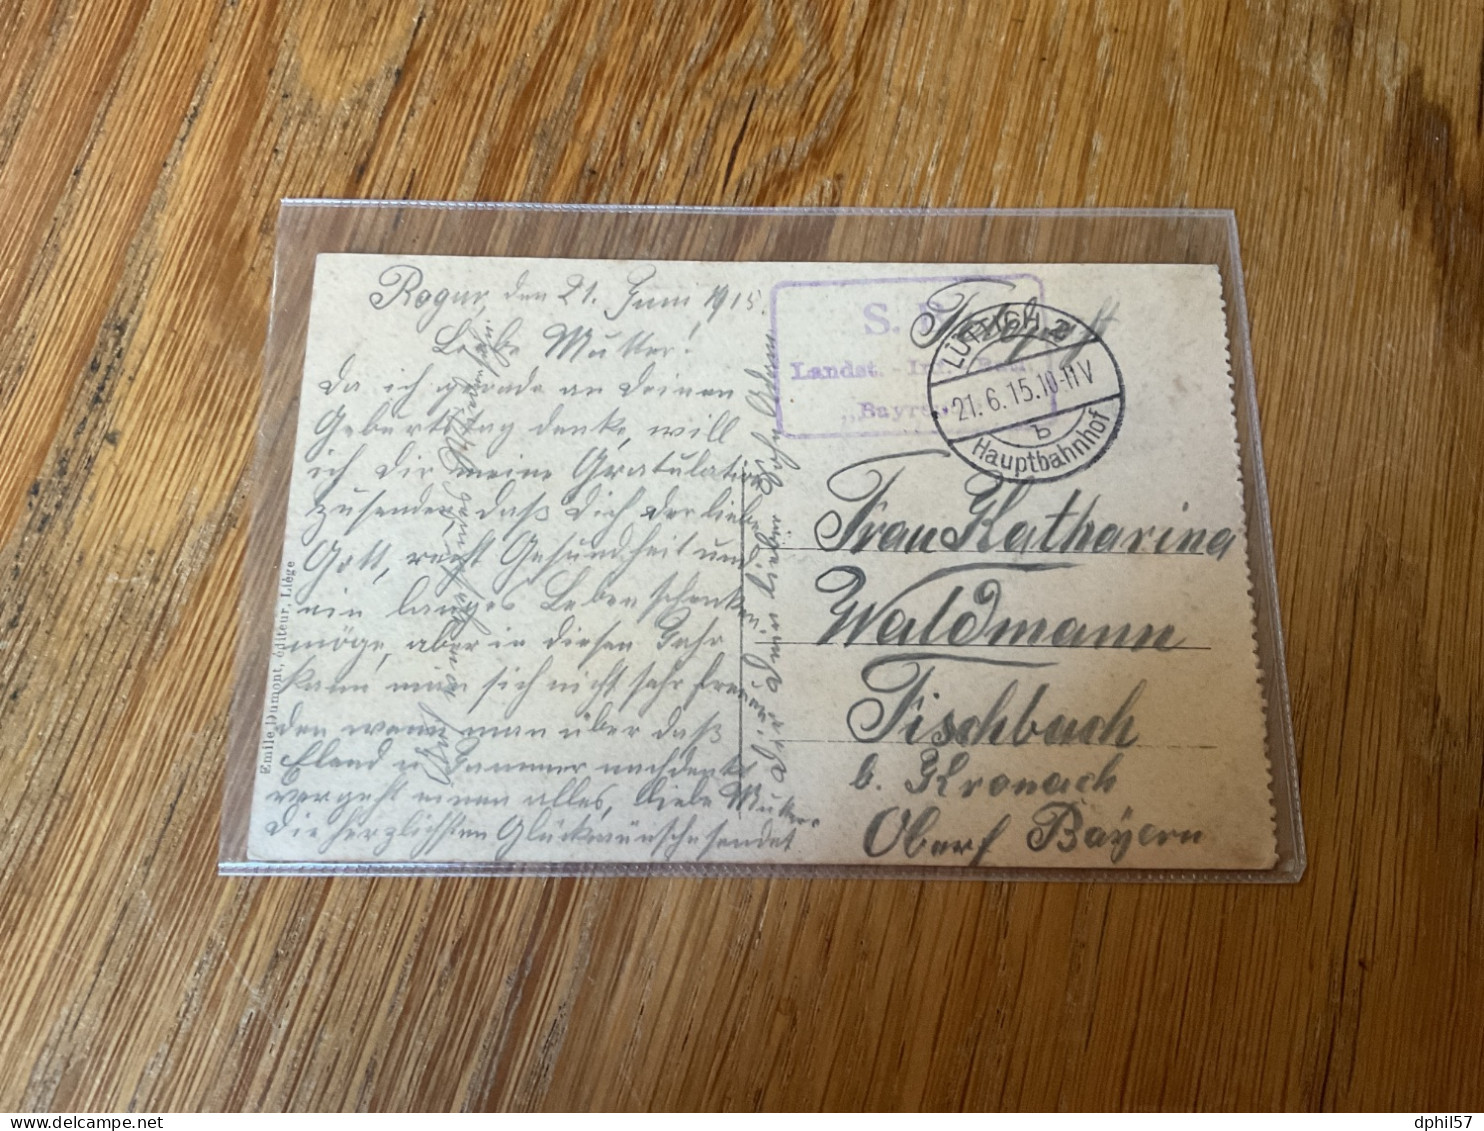 Rognr, den 21. Juni 1915.
Liebe Mutter!
Da ich gerade an Deinen
Geburtstag denke, will
ich Dir meine Gratulation
zusenden, daß Dich der liebe
Gott, recht Gesundheit und
ein langes Leben schenken
möge, aber in diesen Jahr
kann man sich nicht sehr freuen
den wenn man über daß
Elend u Jammer nachdenkt
vergeht einen alles, liebe Mutter
Die herzlichsten Glückwünsche sendet
Dir Dein Sohn Adam
Emile Dumont, éditeur, Liége
S. B.
Landst. - Inf. - Batl.
„Bayreuth
LÜTTICH 2
21.6.15.10-11V
b
Hauptbahnhof
Frau Katharina
Waldmann
Fischbach
b. Kronach
Oberf Bayern
dphil57